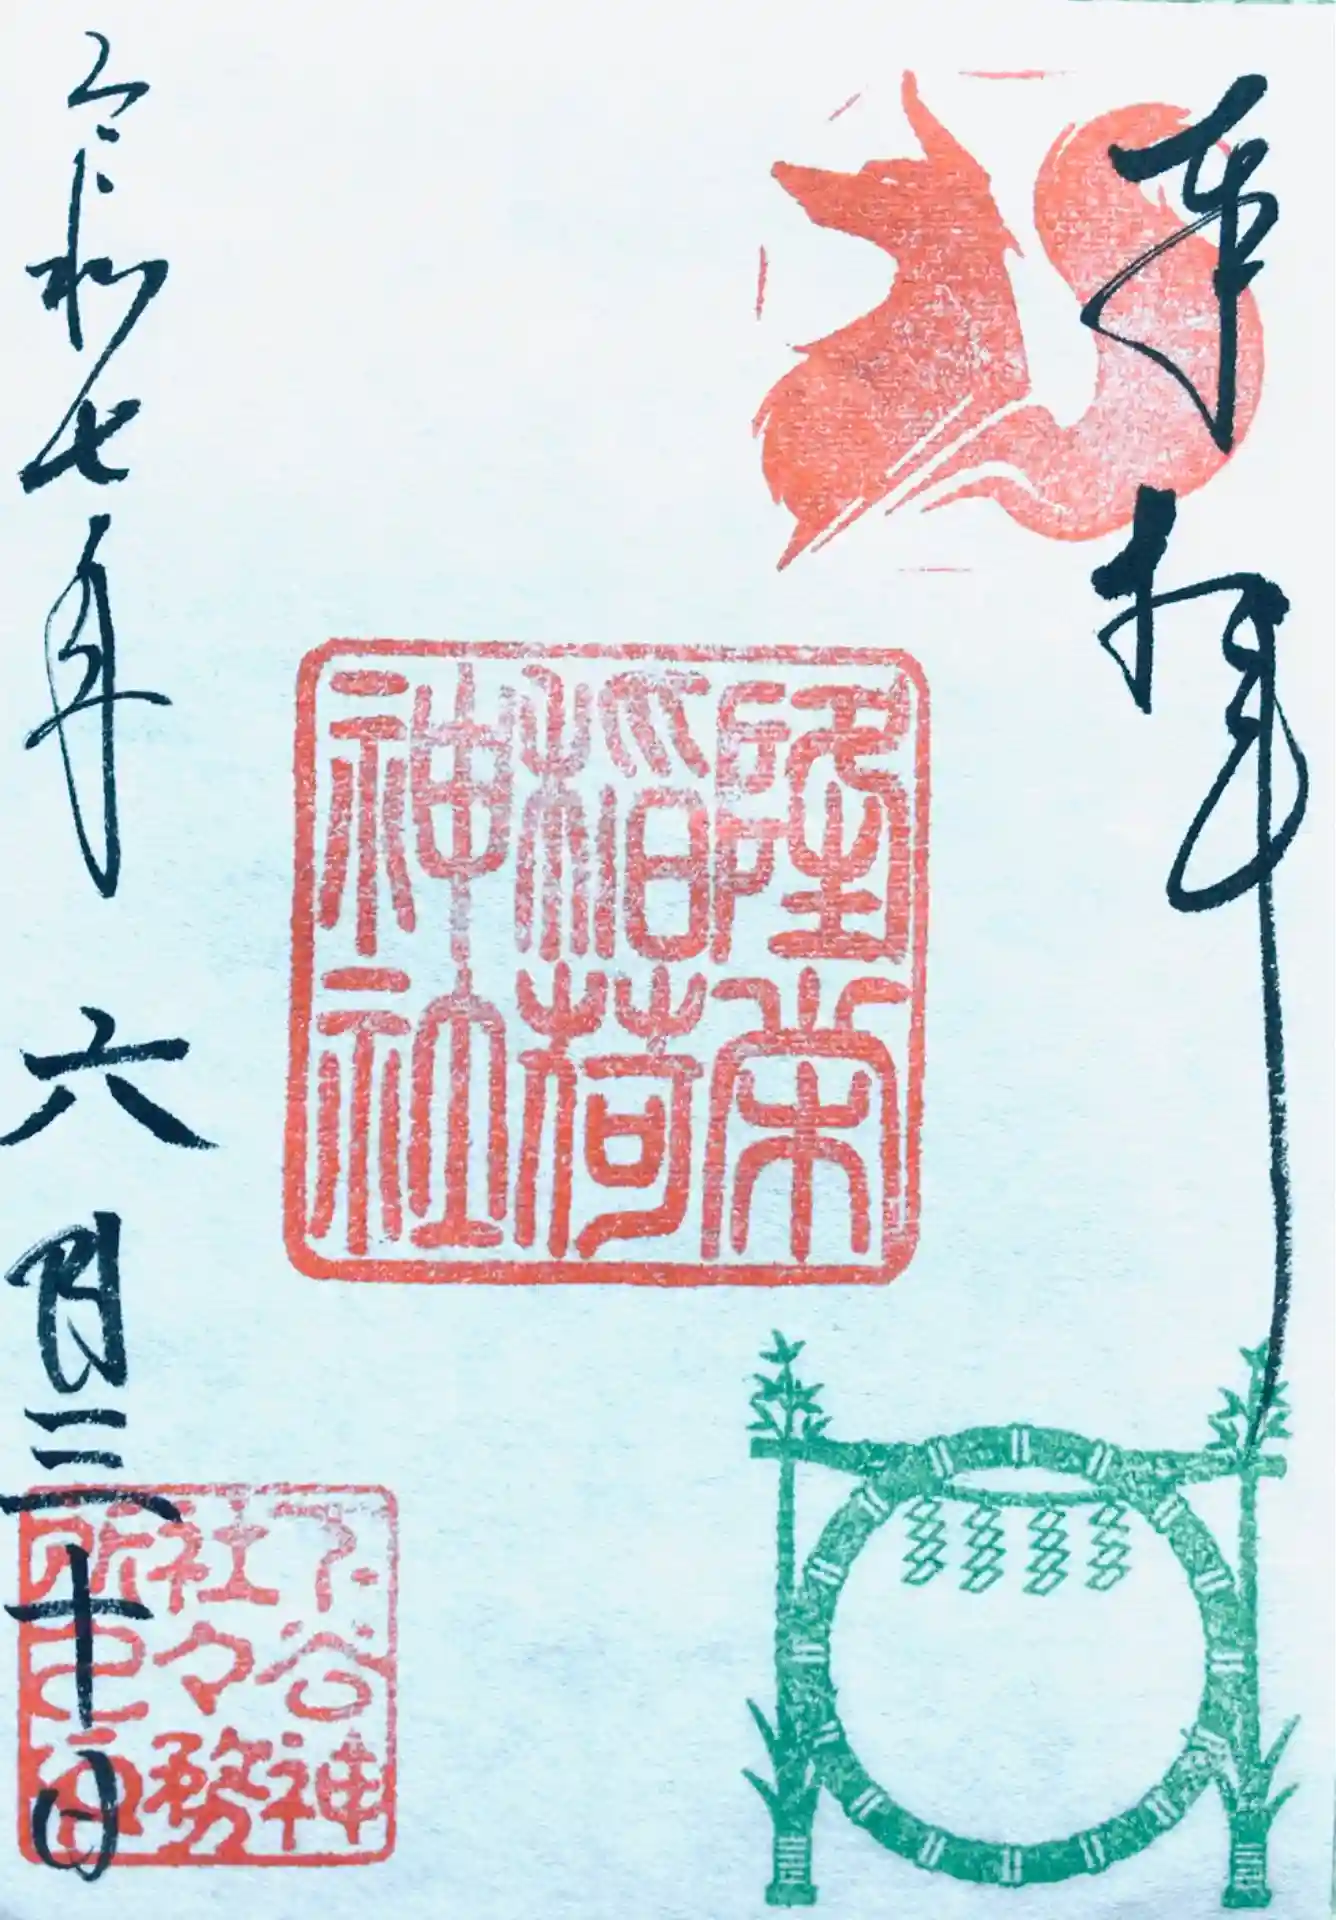 奉拝
隆栄
稲荷
神社
令和七年六月三十日
下谷神
社々務
所之印